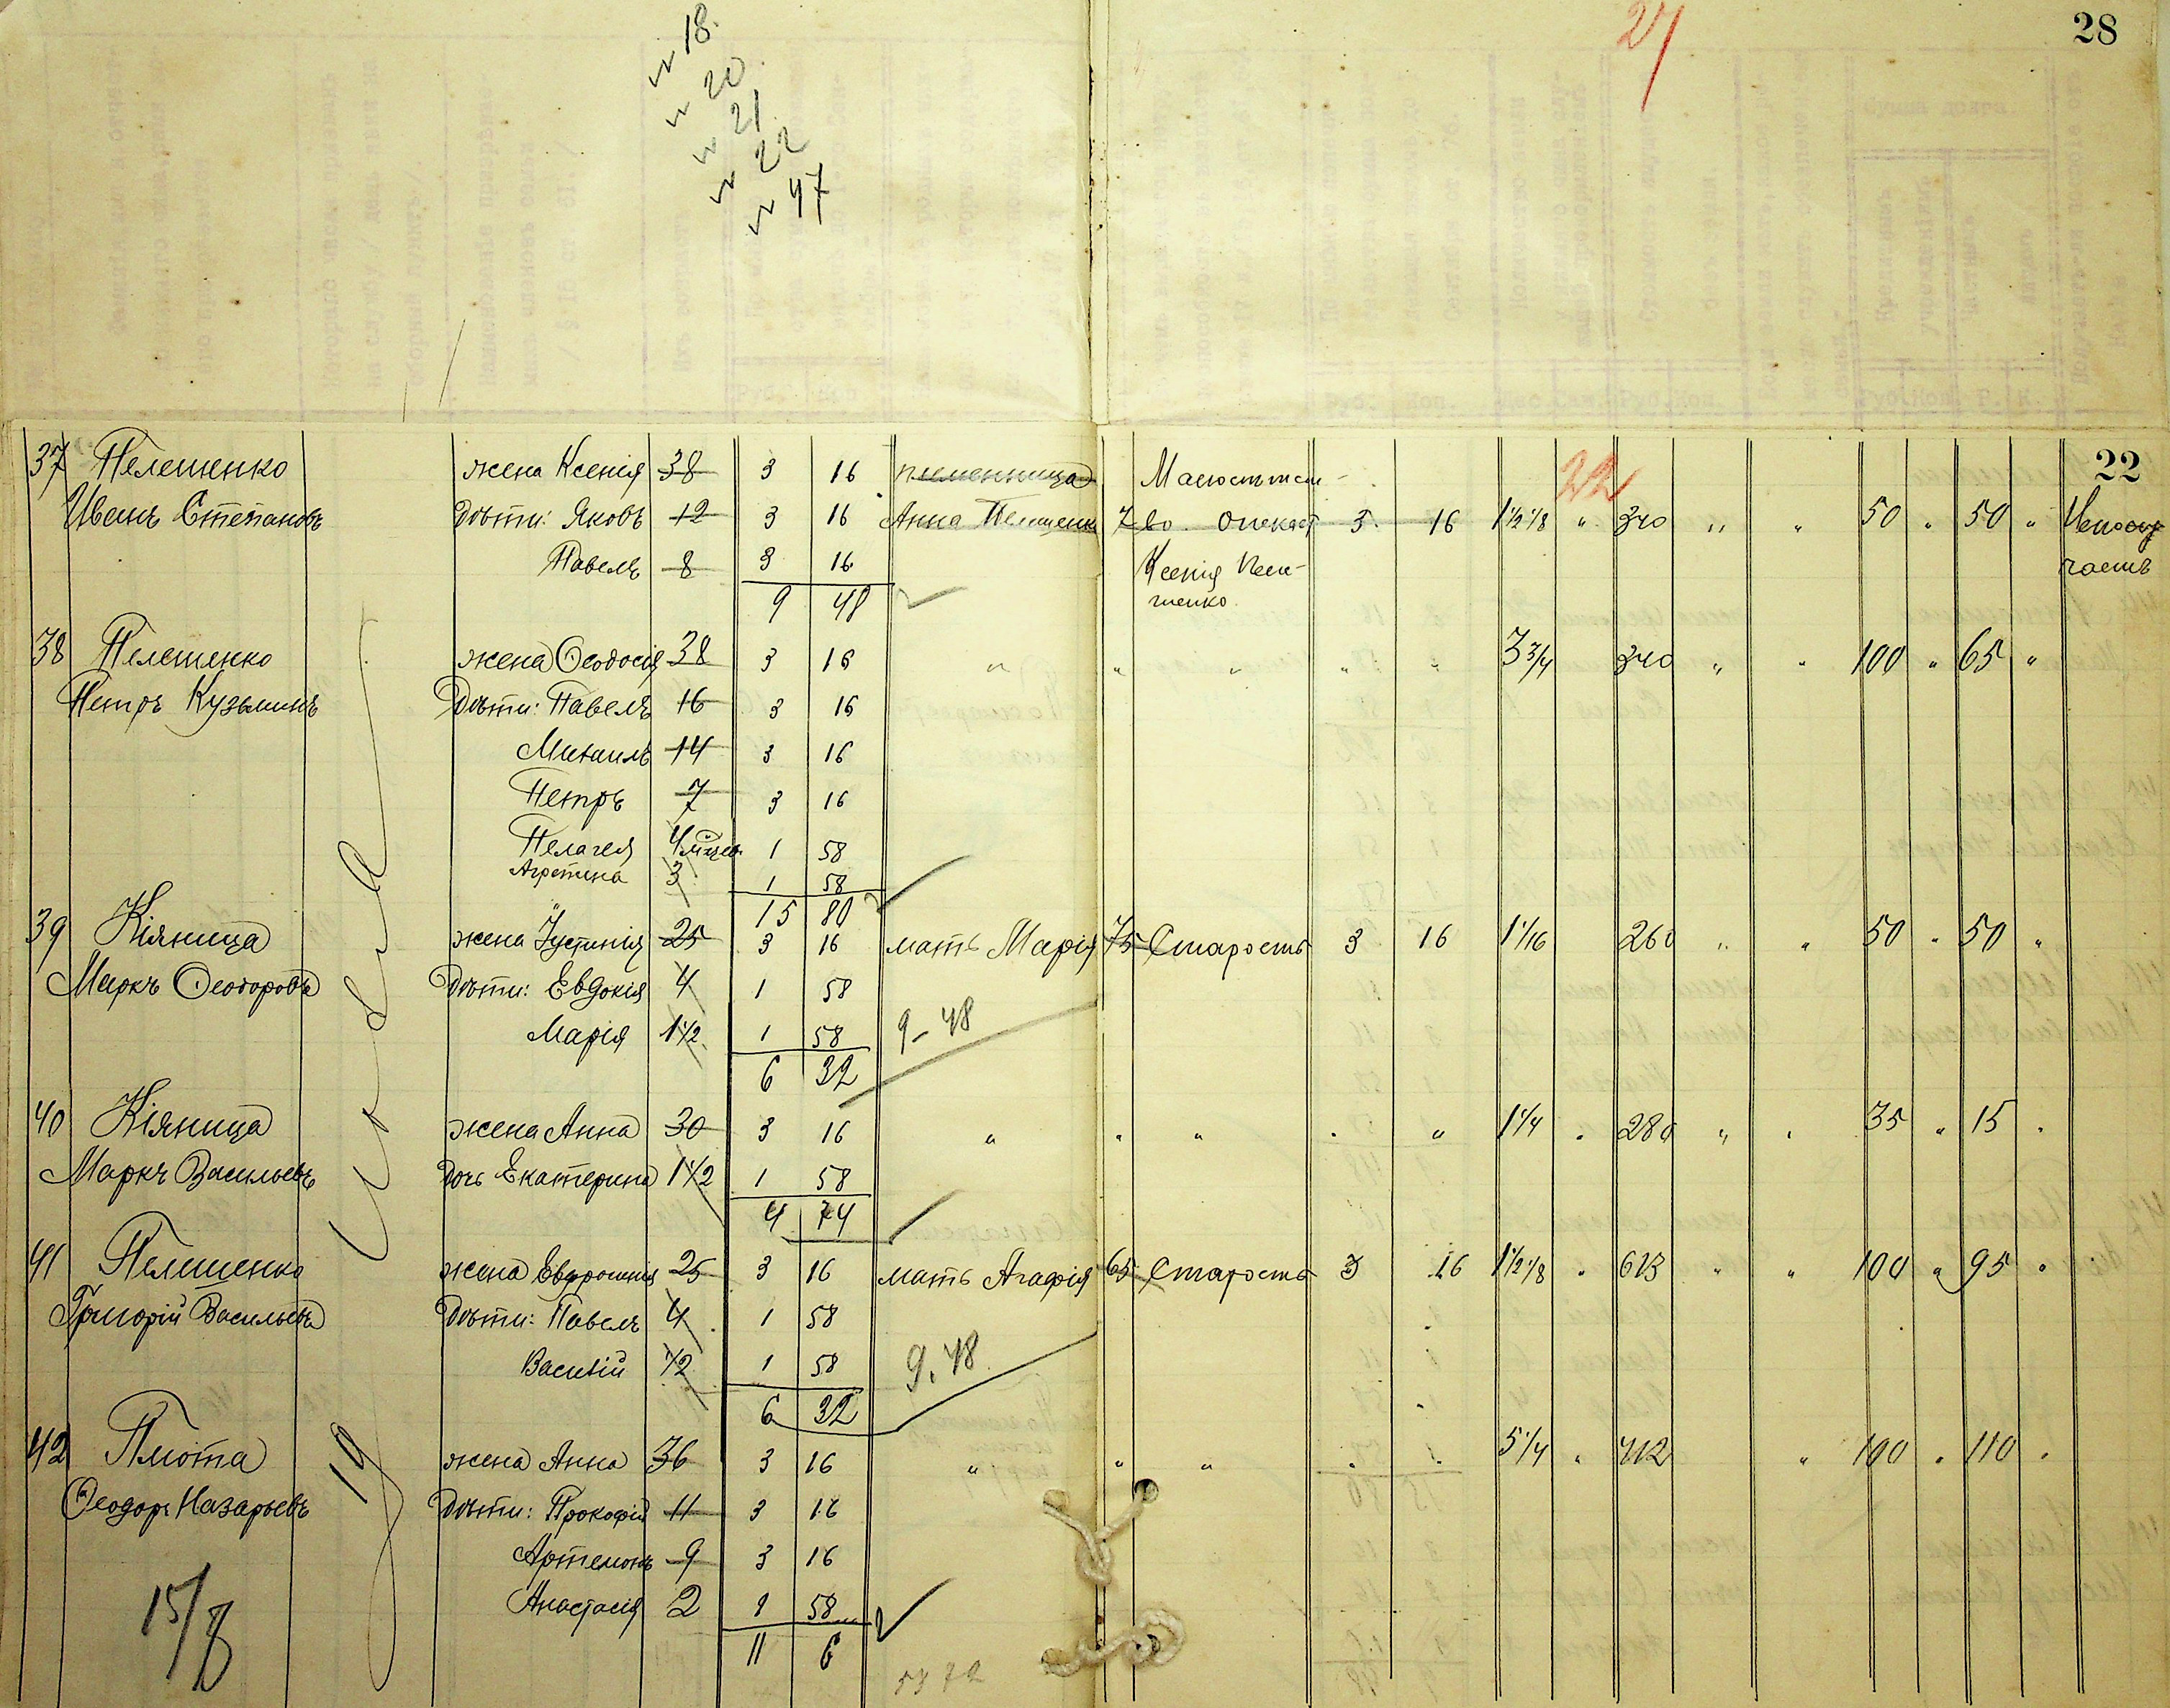 28
27
18.
20
21
22
47
22
22
37 Пелешенко жена Ксенія 38 3 16 племенница Малолѣтст-
Иванъ Степановъ Дѣти: Яковъ 12 3 16 Анна Пелешенко 7 во. опекает 3. 16 1 1/2 1/8 " 340 " " 50 " 50 "
Павелъ 8 3 16 Ксенія Пеле-
9 48 шенко
38 Пелешенко жена Ѳеодосія 38 3 16 " " " " " 3 3/4 340 " " 100 " 65 "
Петръ Кузьминъ Дѣти: Павелъ 16 3 16
Михаилъ 14 3 16
Петръ 7 3 16
Пелагея 4 мѣсяц. 1 58
Агрепина 3 1 58
15 80
39 Кіяница жена Іустинія 25 3 16 мать Марія 75 Старость 3 16 1 1/16 260 " " 50 " 50 "
Маркъ Ѳеодоровъ Дѣти: Евдокія 4 1 58
Марія 1 1/2 1 58 9-48
6 32
40 Кіяница жена Анна 30 3 16 " " " " " 1 1/4 " 280 " " 35 " 15 "
Маркъ Васильевъ дочь Екатерина 1 1/2 1 58
4 74
41 Пелешенко жена Евфросинія 25 3 16 мать Агафія 65 Старость 3 16 1 1/2 1/8 " 613 " " 100 " 95 "
Григорій Васильевъ Дѣти: Павелъ 4 1 58
Василій 1/2 1 58 9.48
6 32
42 Плюта жена Анна 36 3 16 " " " " " 5 1/4 " 412 " 100 " 110 "
Ѳеодоръ Назарьевъ Дѣти: Прокофій 11 3 16
Артемонъ 9 3 16
Анастасія 2 1 58
11 6
15/8
19